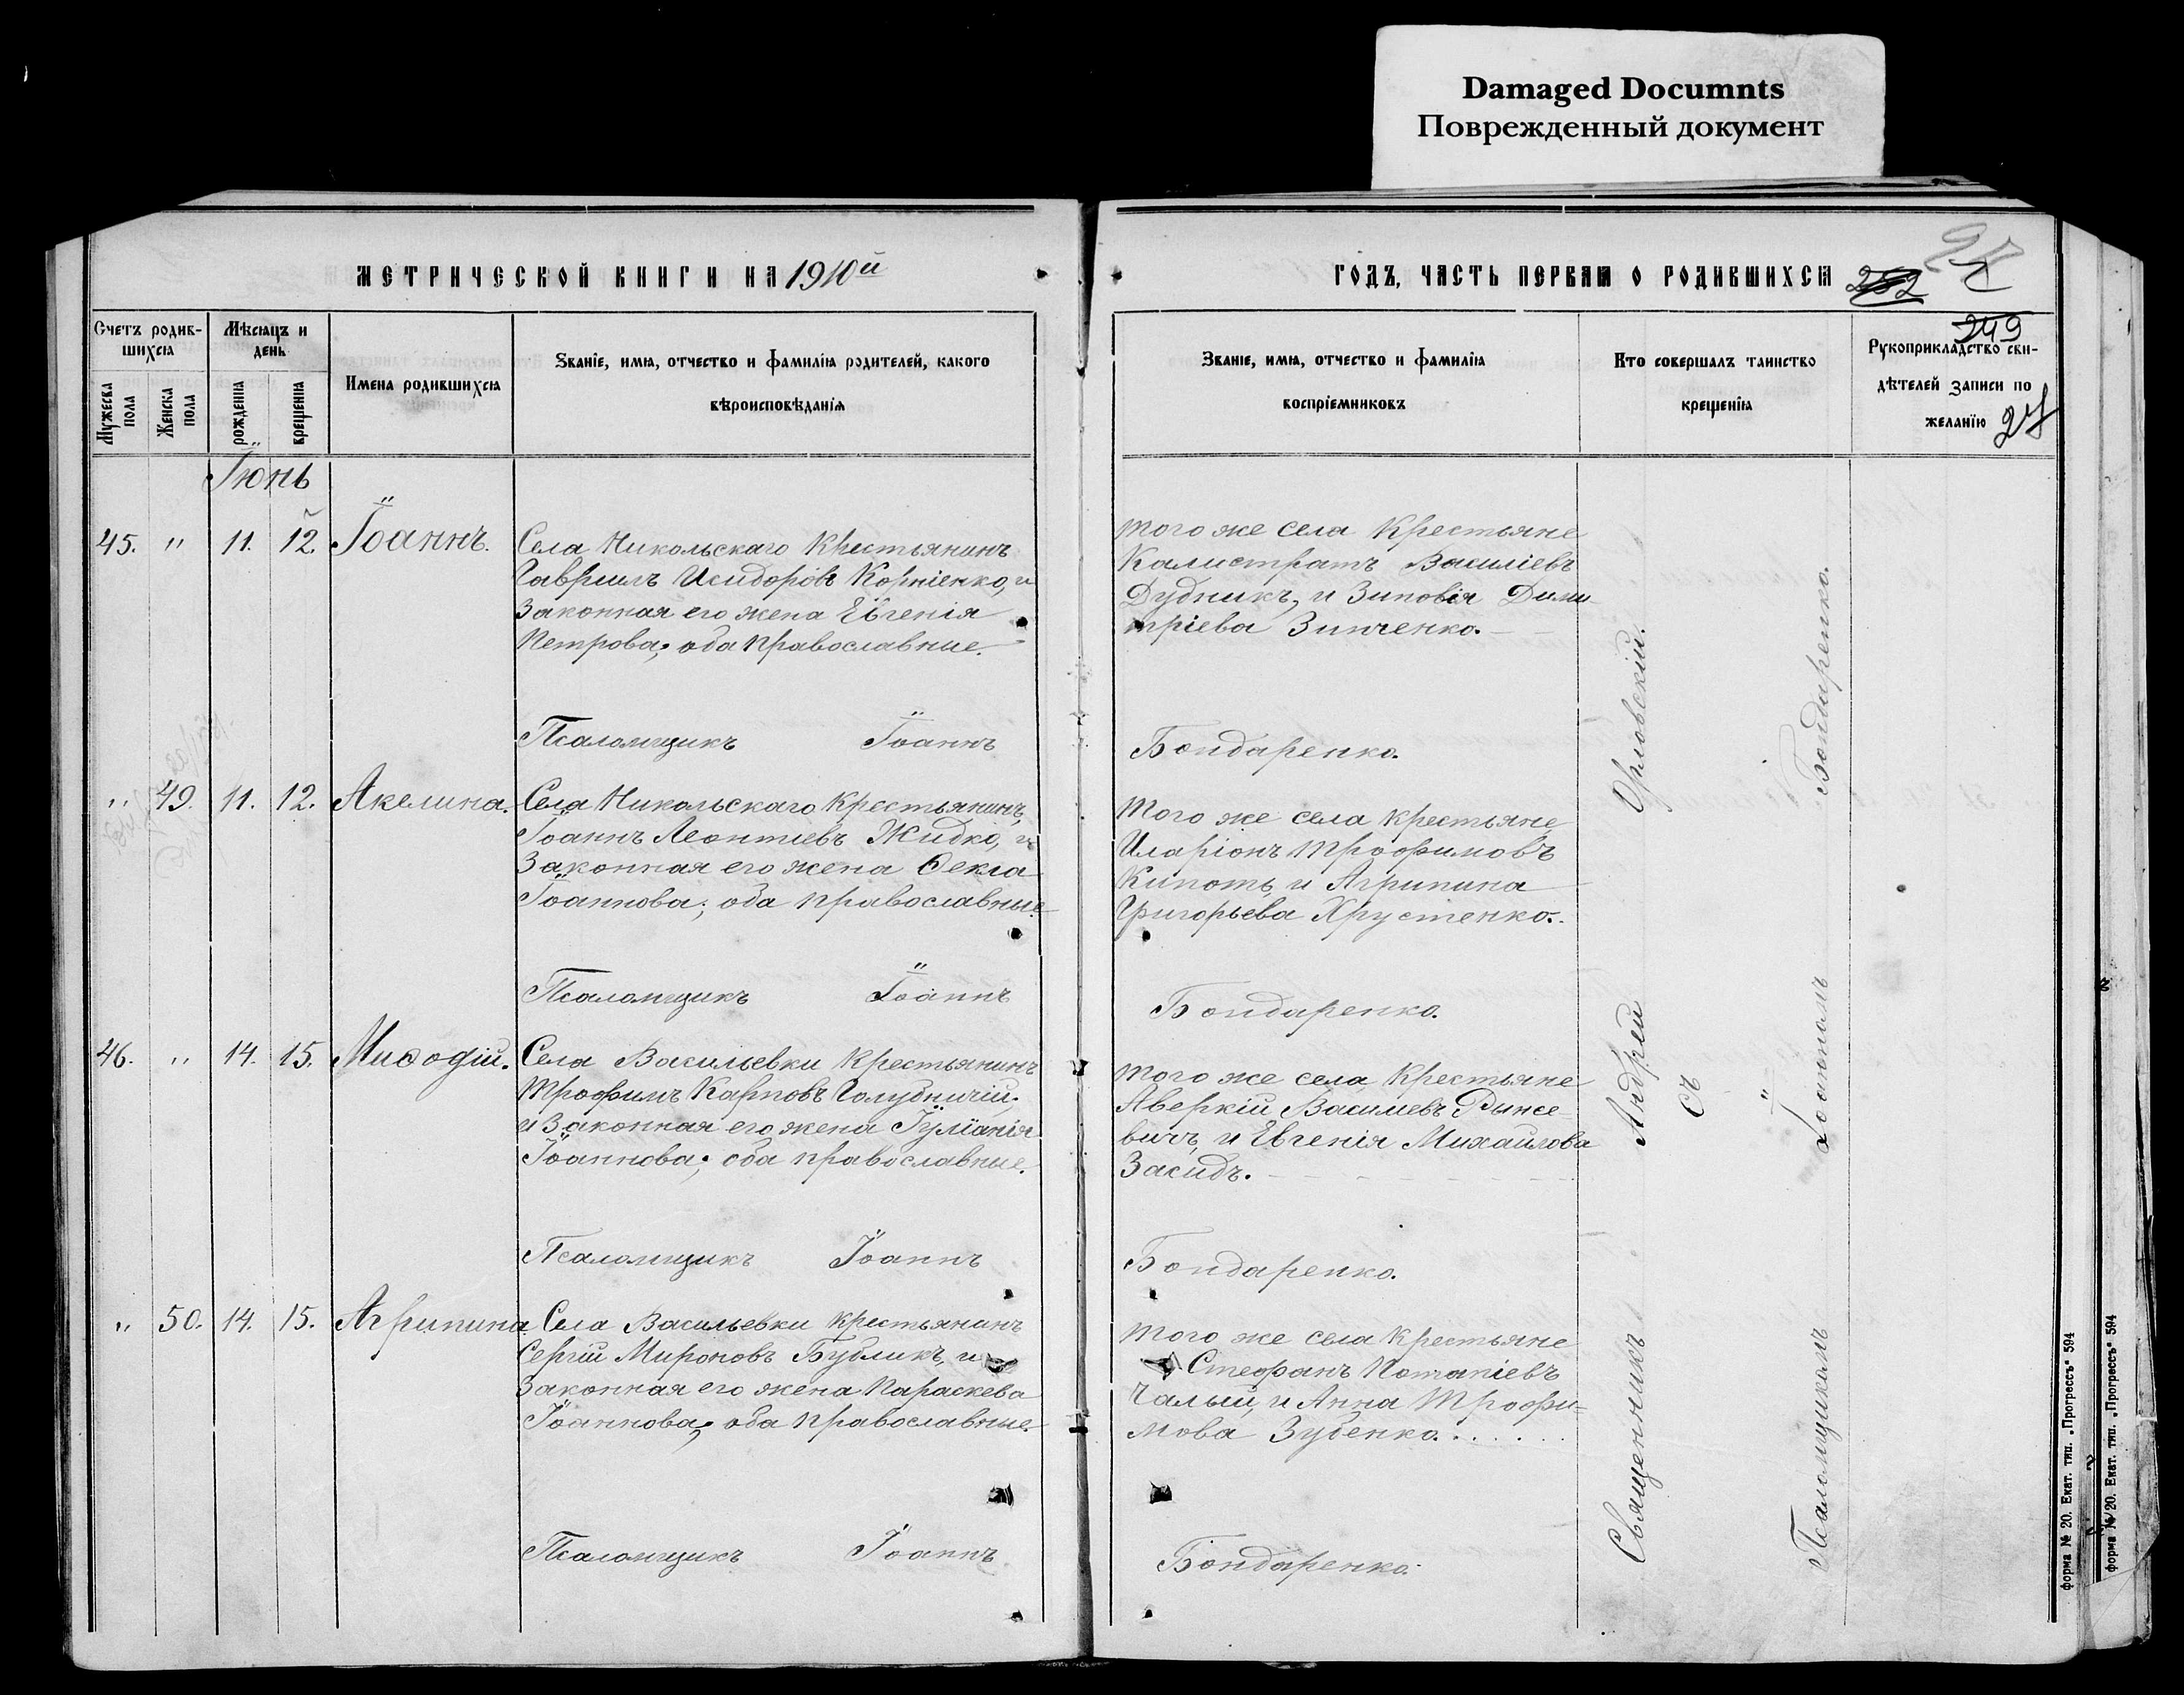 Damaged Documnts
Поврежденный документ
МЕТРИЧЕСКОЙ КНИГИ НА 1910й
ГОДЪ, ЧАСТЬ ПЕРВАЯ О РОДИВШИХСЯ
249
27
Счетъ родив-
шихся
Мѣсяцъ и
день
Мужеска
пола
Женска
пола
рожденія
крещенія
Имена родившихся
Званіе, имя, отчество и фамилія родителей, какого
вѣроисповѣданія
Званіе, имя, отчество и фамилія
воспріемниковъ
Кто совершалъ таинство
крещенія
Рукоприкладство сви-
дѣтелей записи по
желанію
Іюнь
45. " 11. 12. Іоаннъ.
Села Никольскаго Крестьянинъ
Гавріилъ Исидоровъ Корніенко, и
Законная его жена Евгенія
Петрова; оба православные.
того же села Крестьяне
Калистратъ Василіевъ
Дудникъ, и Зиновія Дими-
тріева Зинченко.
Псаломщикъ Іоаннъ Бондаренко.
" 49. 11. 12. Акелина.
Села Никольскаго Крестьянинъ,
Іоаннъ Леонтиевъ Жидко, и
Законная его жена Ѳекла
Іоаннова; оба православные.
Того же села крестьяне
Иларіонъ Трофимовъ
Кипоть, и Агрипина
Григорьева Хрустенко.
Псаломщикъ Іоаннъ Бондаренко.
46. " 14. 15. Миѳодій.
Села Васильевки Крестьянинъ
Трофимъ Карповъ Голубничій;
и Законная его жена Іуліанія
Іоаннова; оба православные.
того же села Крестьяне
Аверкій Василиевъ Рынке
вичъ, и Евгенія Михаилова
Засидъ.
Псаломщикъ Іоаннъ Бондаренко.
" 50. 14. 15. Агрипина
Села Васильевки крестьянинъ
Сергій Мироновъ Бубликъ, и
Законная его жена Параскева
Іоаннова; оба православные.
того же села Крестьяне
Стефанъ Потапіевъ
Чалый, и Анна Трофи=
мова Зубенко.
Псаломщикъ Іоаннъ Бондаренко.
Священникъ Андрей Орловскій.
съ
Псаломщикомъ Іоанномъ Бондаренко.
форма № 20. Екат. тип. „Прогрессъ" 594
форма № 20. Екат. тип. „Прогрессъ" 594